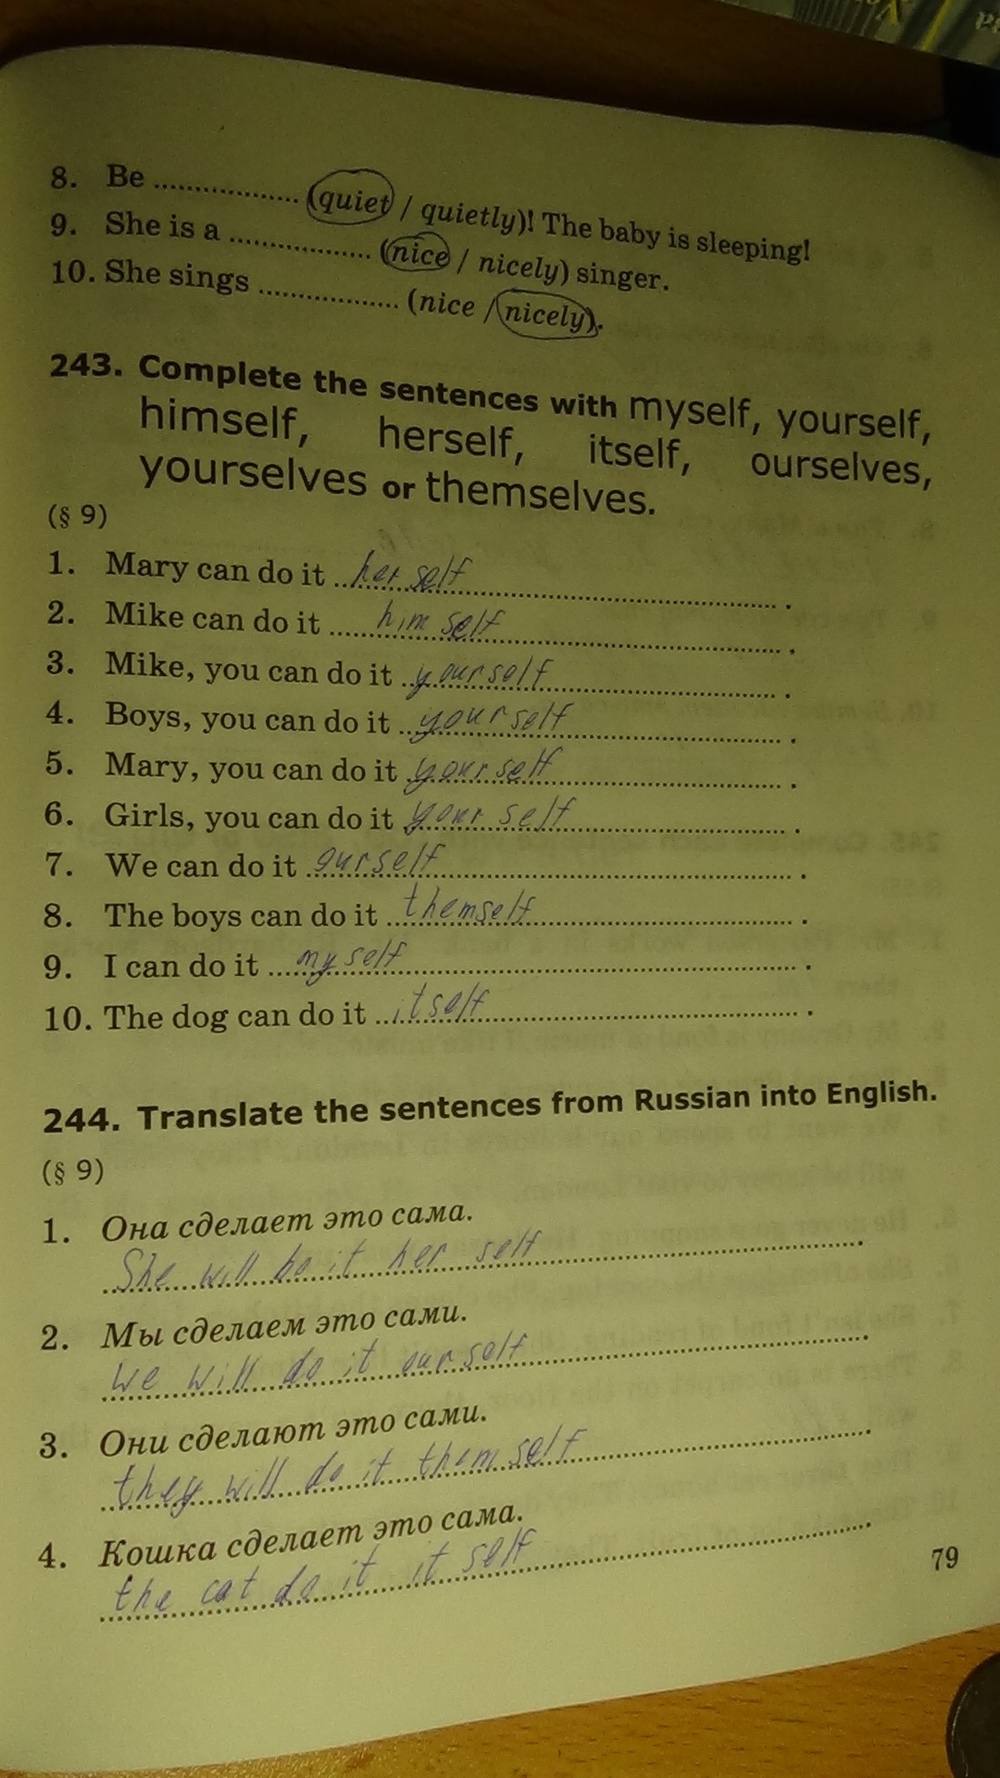 8. Be .................. (quiet / quietly)! The baby is sleeping!
9. She is a .................. (nice / nicely) singer.
10. She sings .................. (nice / nicely).
243. Complete the sentences with myself, yourself,
himself, herself, itself, ourselves,
yourselves or themselves.
(§ 9)
1. Mary can do it her self .
2. Mike can do it him self .
3. Mike, you can do it yourself .
4. Boys, you can do it yourself .
5. Mary, you can do it your self .
6. Girls, you can do it your self .
7. We can do it ourself .
8. The boys can do it themself .
9. I can do it my self .
10. The dog can do it itself .
244. Translate the sentences from Russian into English.
(§ 9)
1. Она сделает это сама.
She will do it her self .
2. Мы сделаем это сами.
We will do it our self .
3. Они сделают это сами.
they will do it them self .
4. Кошка сделает это сама.
the cat do it it self .
79